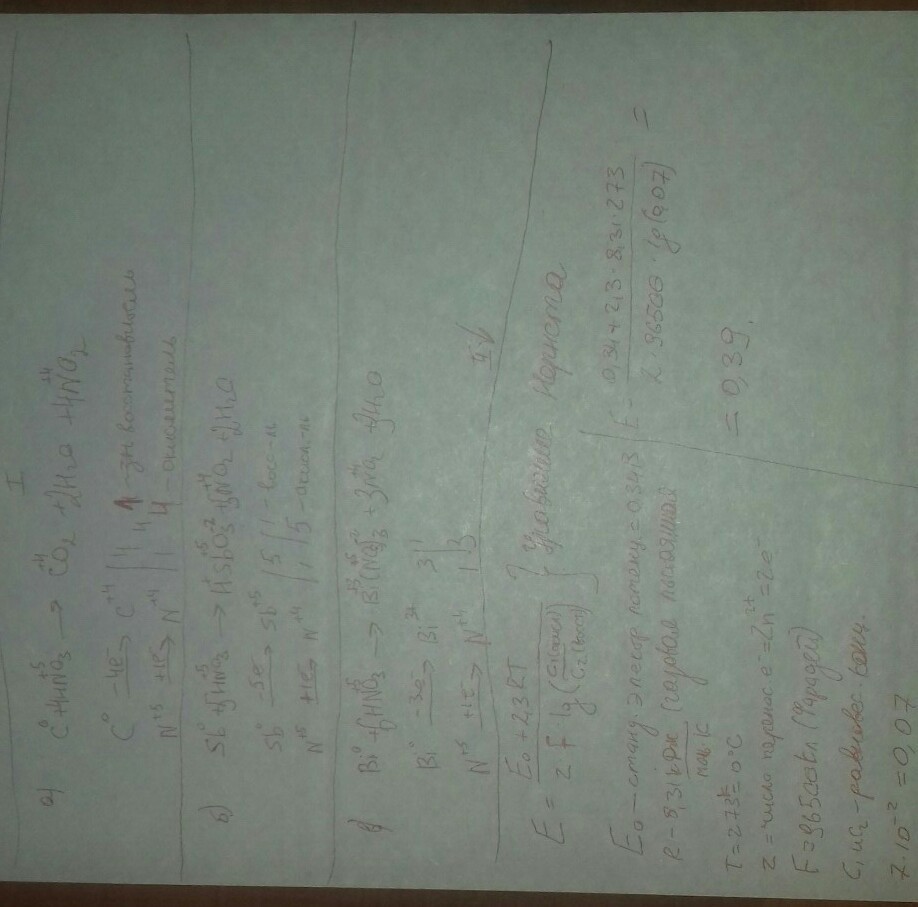 I
а) C⁰ + 4HN⁺⁵O₃ → C⁺⁴O₂ + 2H₂O + 4N⁺⁴O₂
C⁰ –4e⁻→ C⁺⁴ | 4 | 1
N⁺⁵ +1e⁻→ N⁺⁴ | 1 | 4 – окислитель
б) Sb⁰ + 5HN⁺⁵O₃ → HSb⁺⁵O₃⁻² + 5N⁺⁴O₂ + 2H₂O
Sb⁰ –5e⁻→ Sb⁺⁵ | 5 | 1 – восс-ль
N⁺⁵ +1e⁻→ N⁺⁴ | 1 | 5 – окисл-ль
в) Bi⁰ + 6HN⁺⁵O₃ → Bi⁺³(N⁺⁵O₃⁻²)₃ + 3N⁺⁴O₂ + 3H₂O
Bi⁰ –3e⁻→ Bi³⁺ 3 | 1
N⁺⁵ +1e⁻→ N⁺⁴ 1 | 3
E = E₀ + 2,3RT / z F lg (C₁(окисл) / C₂(восст)) } Уравнение Нернста
E₀ – станд. электр. потенц. = 0,34 В
R – 8,31 кДж / моль·К (газовая постоянная
T = 273 К = 0°C
z = число перенос. e⁻ = Zn²⁺ = 2e⁻
F = 96500 Кл (Фарадей)
C₁ и C₂ – равновес. конц.
7·10⁻² = 0,07
E = 0,34 + 2,3·8,31·273 / 2·96500·lg(0,07) =
= 0,39.